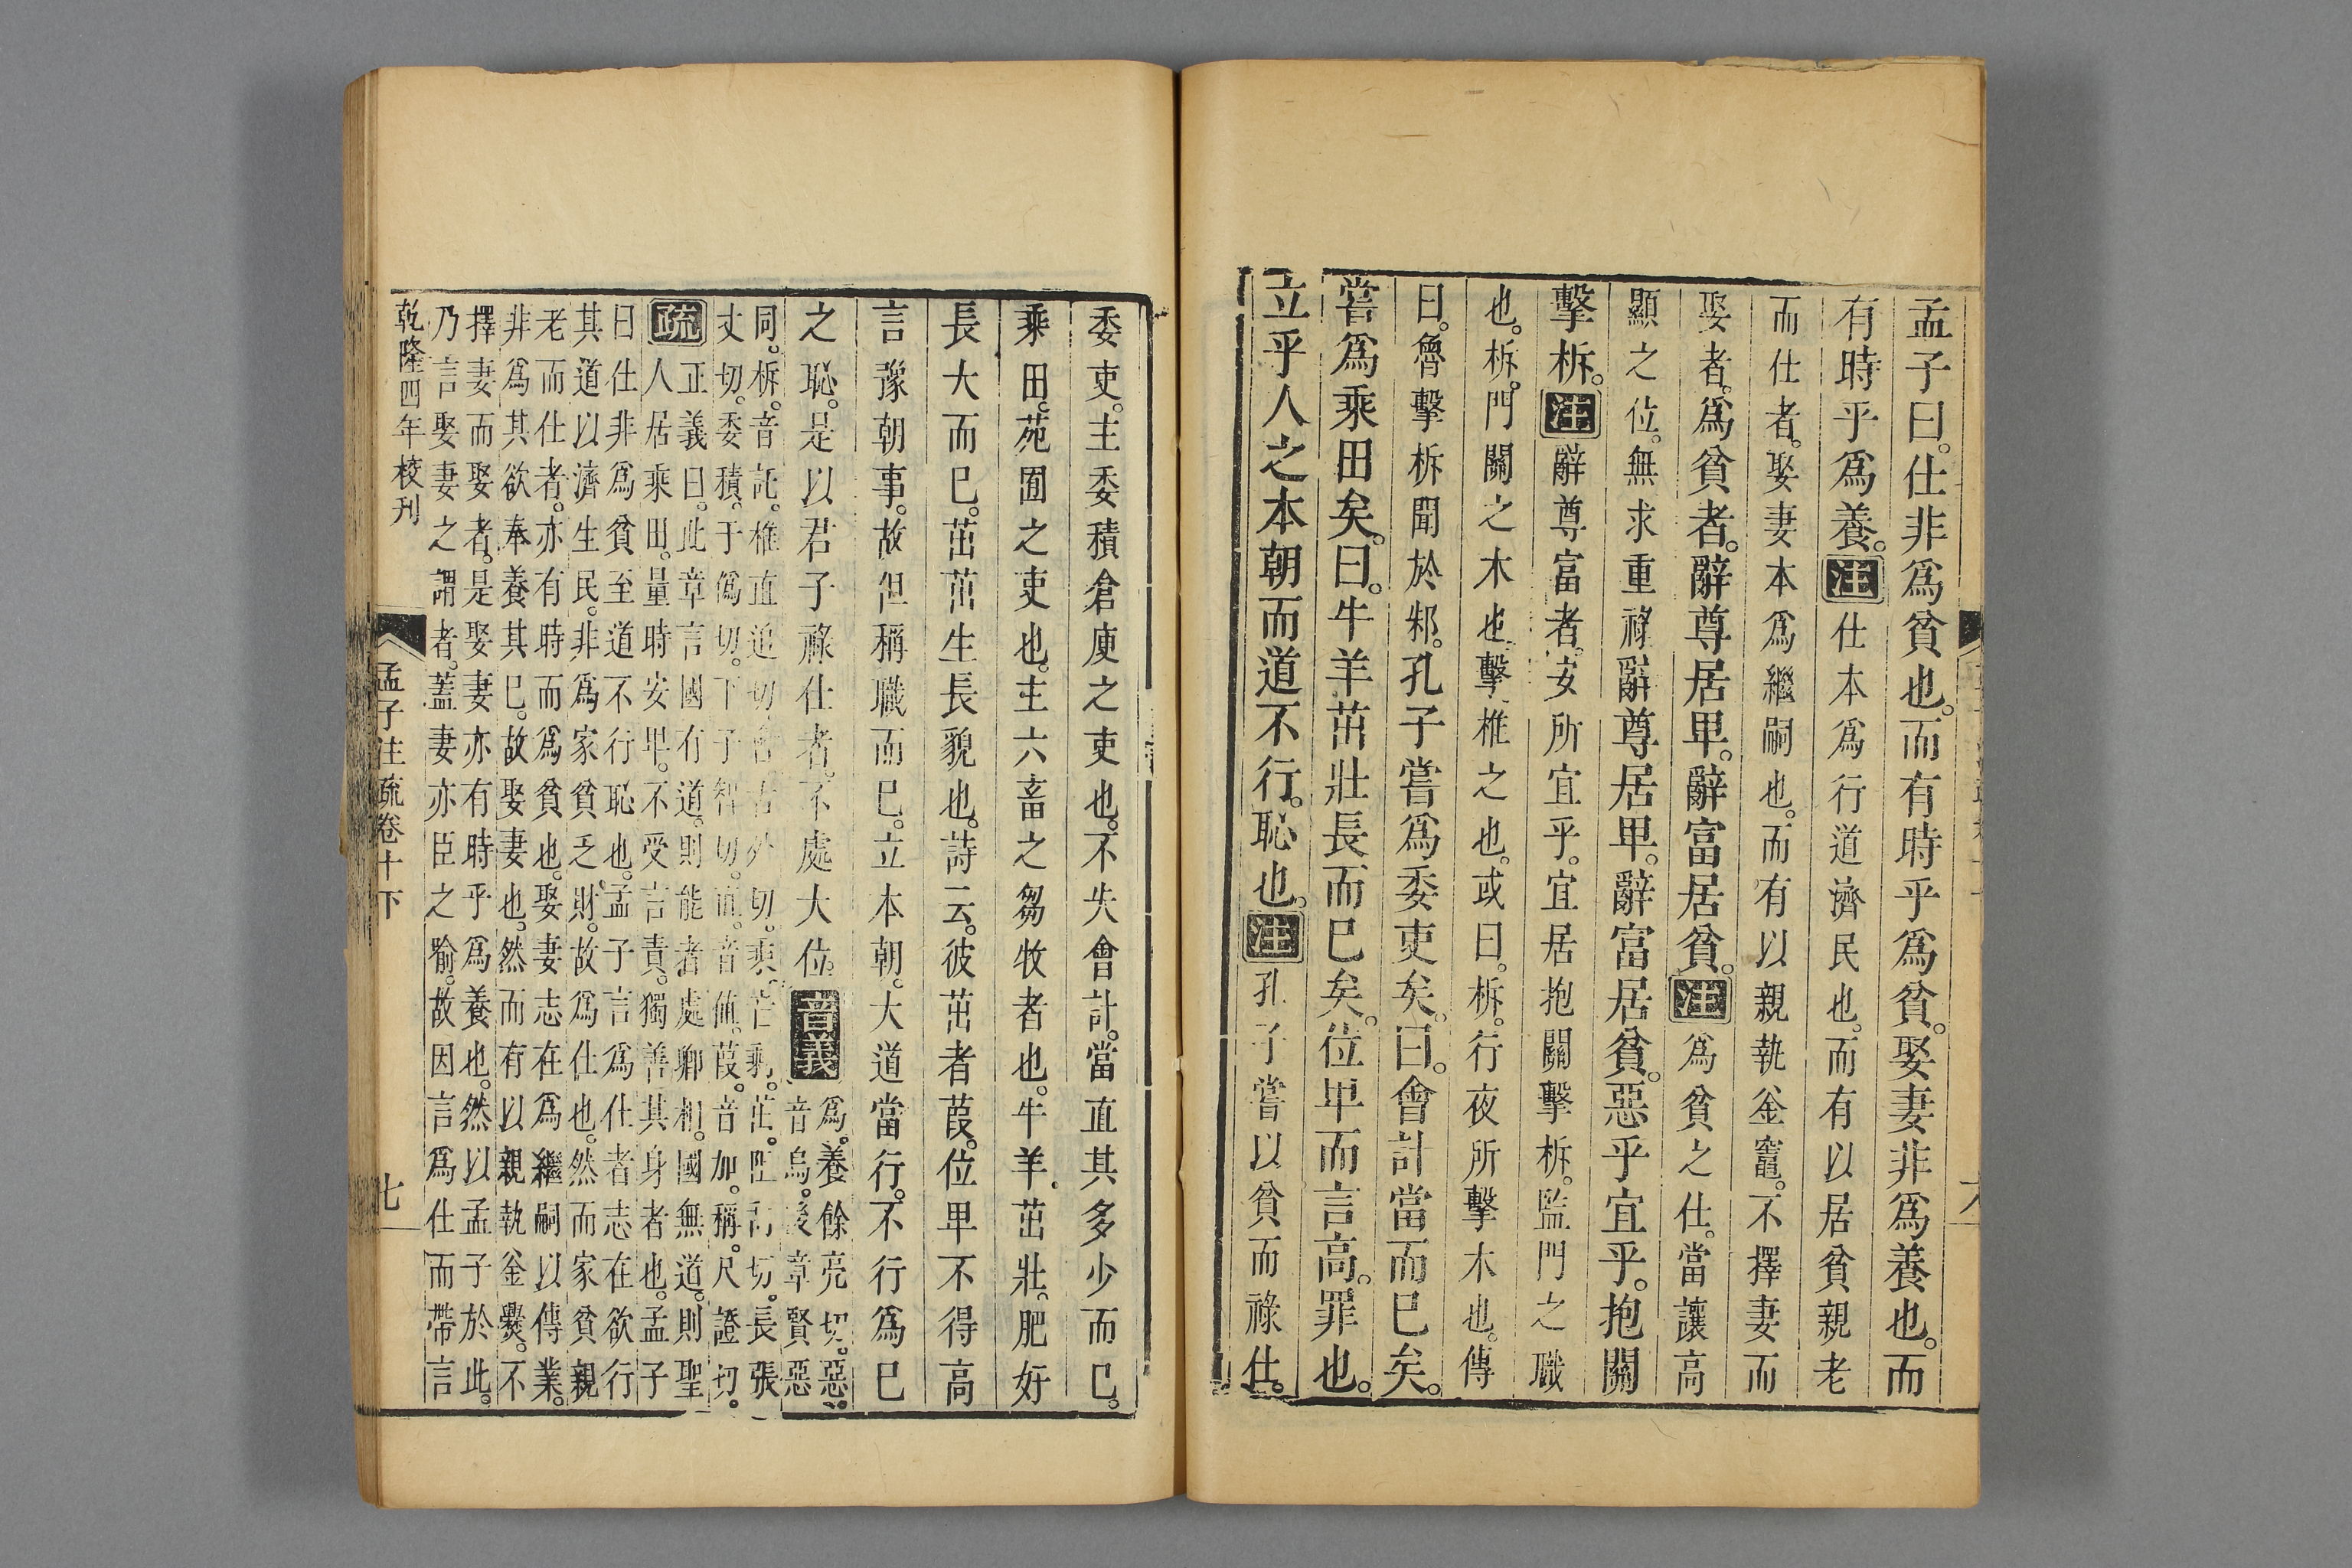 孟子曰。仕非爲貧也。而有時乎爲貧。娶妻非爲養也。而
有時乎爲養。注仕本爲行道濟民也。而有以居貧親老
而仕者。娶妻本爲繼嗣也。而有以親執釜竈。不擇妻而
娶者。爲貧者。辭尊居卑。辭富居貧。注爲貧之仕。當讓高
顯之位。無求重祿。辭尊居卑。辭富居貧。惡乎宜乎。抱關
擊柝。注辭尊富者。安所宜乎。宜居抱關擊柝。監門之職
也。柝。門關之木也。擊。椎之也。或曰。柝。行夜所擊木也。傳
曰。魯擊柝聞於邾。孔子嘗爲委吏矣。曰。會計當而已矣。
嘗爲乘田矣。曰。牛羊茁壯長而已矣。位卑而言高。罪也。
立乎人之本朝而道不行。恥也。注孔子嘗以貧而祿仕。
委吏。主委積倉庾之吏也。不失會計。當直其多少而已。
乘田。苑囿之吏也。主六畜之芻牧者也。牛羊茁壯。肥好
長大而已。茁茁生長貌也。詩云。彼茁者葭。位卑不得高
言豫朝事。故但稱職而已。立本朝。大道當行。不行爲己
之恥。是以君子祿仕者。不處大位。音義爲。養餘亮切。惡。
音烏。後章賢惡
同。柝。音託。椎直追切會古外切。乘。音剩。茁。阻刮切。長張
丈切。委積。于僞切。下子智切。畜。音値。葭。音加。稱。尺證切。
疏正義曰。此章言國有道。則能者處卿相。國無道。則聖
人居乘田。量時安卑。不受言責。獨善其身者也。孟子
曰仕非爲貧至道不行恥也。孟子言爲仕者志在欲行
其道以濟生民。非爲家貧乏財。故爲仕也。然而家貧親
老而仕者。亦有時而爲貧也。娶妻志在爲繼嗣以傳業。
非爲其欲奉養其己。故娶妻也。然而有以親執釜爨。不
擇妻而娶者。是娶妻亦有時乎爲養也。然以孟子於此。
乃言娶妻之謂者。蓋妻亦臣之喻。故因言爲仕而帶言
乾隆四年校刊
孟子注疏卷十下
七